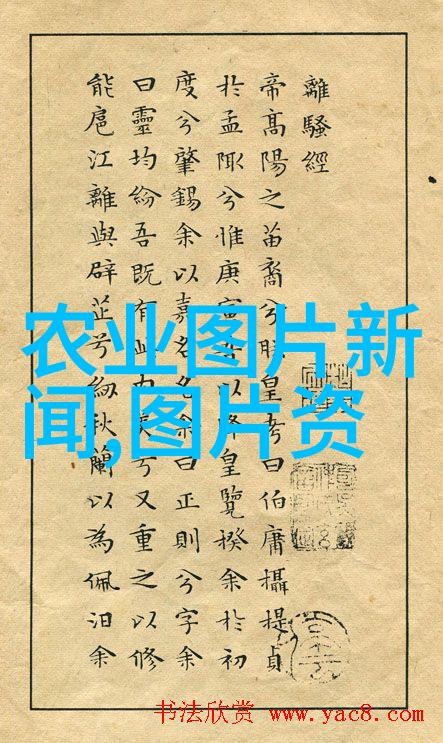 離騷經
帝高陽之苗裔兮朕皇考曰伯庸攝提貞
於孟陬兮惟庚寅吾以降皇覽揆余於初
度兮肇錫余以嘉名名余曰正則兮字余
曰靈均紛吾既有此內美兮又重之以修
能扈江離與辟芷兮紉秋蘭以為佩汩余
农业图片新
闻,图片资
书法欣赏 www.yac8.com